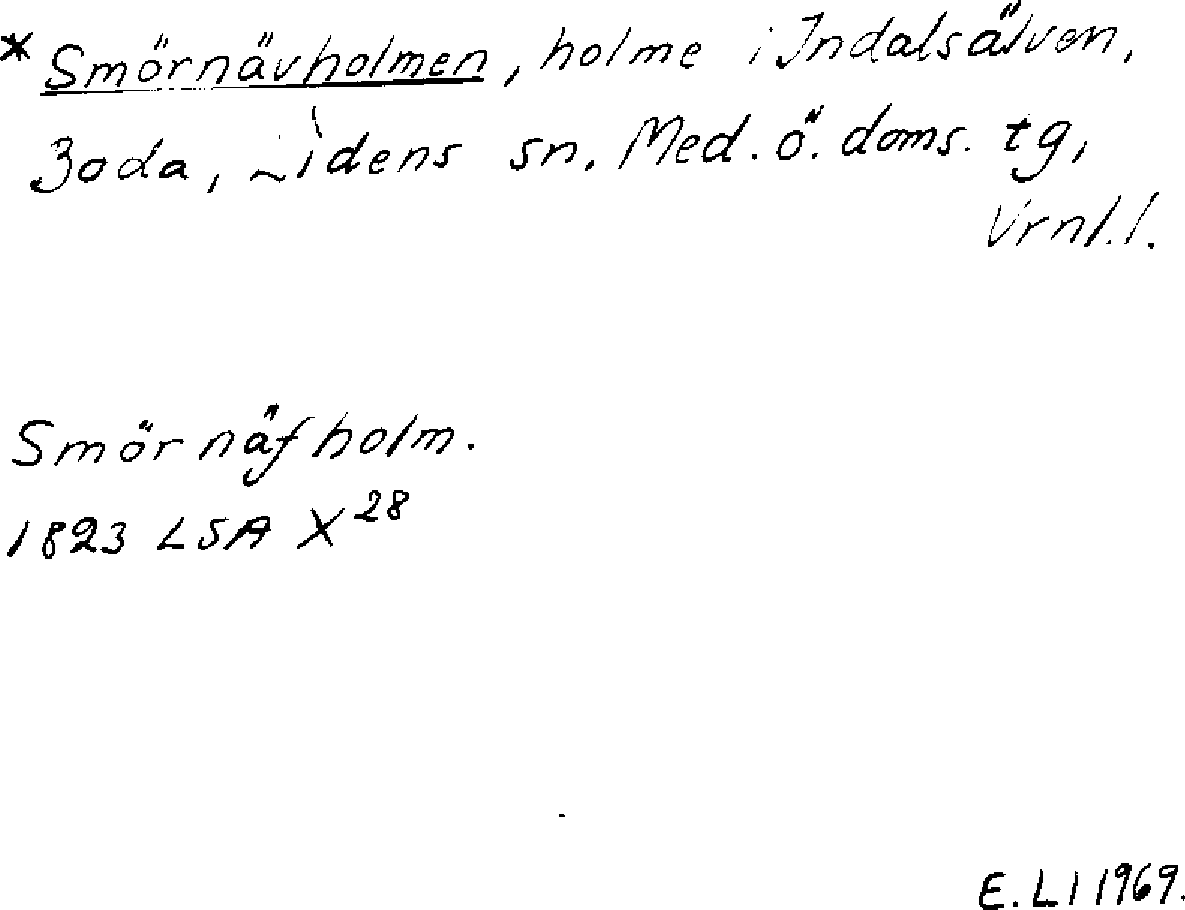 * Smörnävholmen, holme i Indalsälven,
Boda, Lidens sn. Med. ö. doms. tg,
Vrnl.l.
Smörnäfholm.
1823 LSA X28
E. Ll 1969.